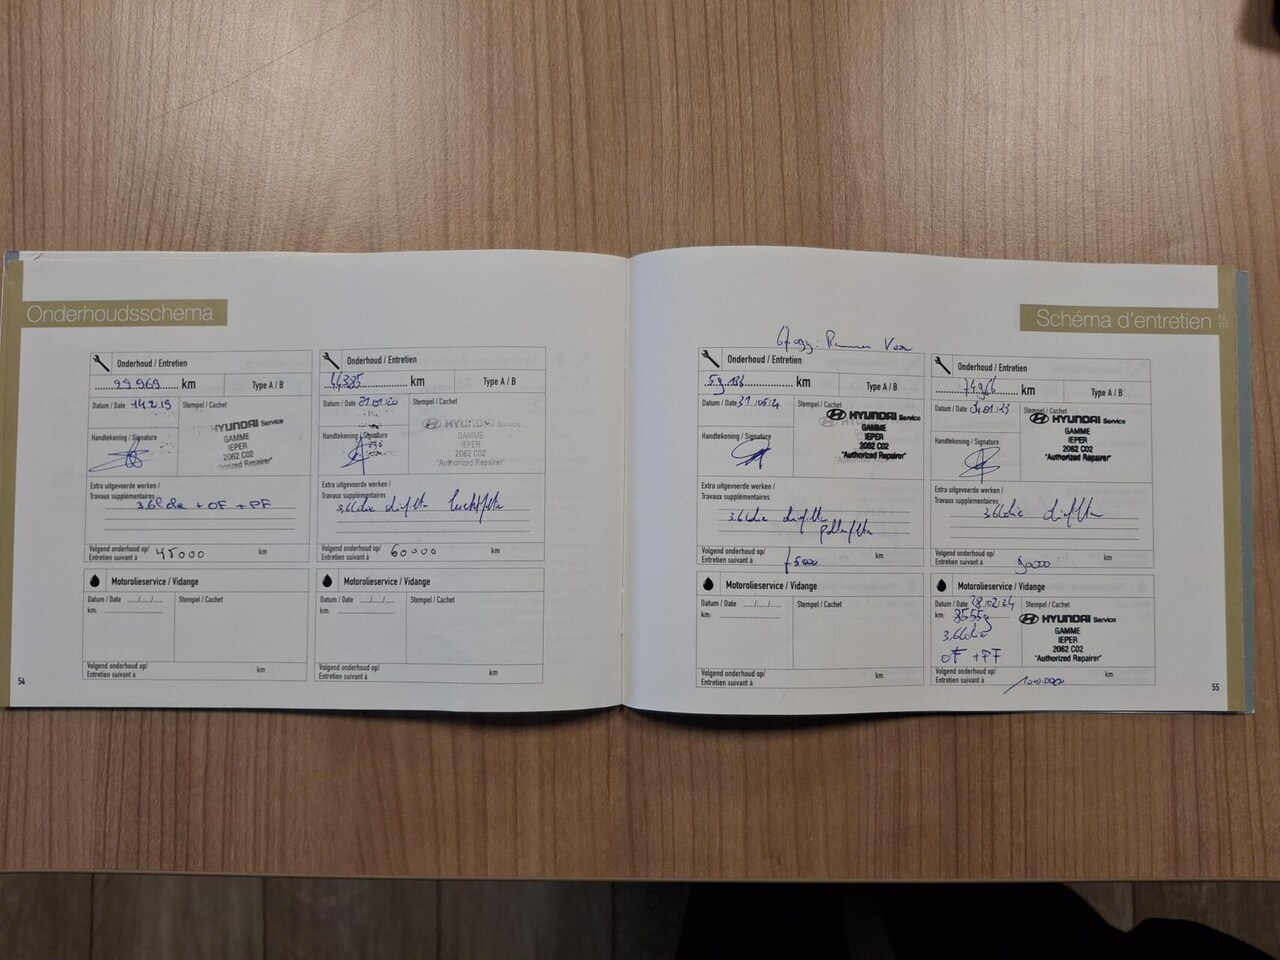 Onderhoudsschema
Onderhoud / Entretien
29969 km Type A / B
Datum / Date 14 2 19 Stempel / Cachet
HYUNDAI Service
GAMME
IEPER
2062 C02
"Authorized Repairer"
Handtekening / Signature
Extra uitgevoerde werken /
Travaux supplémentaires
3.6l olie + OF + PF
Volgend onderhoud op/
Entretien suivant à 45000 km
Motorolieservice / Vidange
Datum / Date __/__/__ Stempel / Cachet
km:
Volgend onderhoud op/
Entretien suivant à km
Onderhoud / Entretien
44385 km Type A / B
Datum / Date 21 01 20 Stempel / Cachet
HYUNDAI Service
GAMME
IEPER
2062 C02
"Authorized Repairer"
Handtekening / Signature
Extra uitgevoerde werken /
Travaux supplémentaires
3,6l olie oliefilter luchtfilter
Volgend onderhoud op/
Entretien suivant à 60000 km
Motorolieservice / Vidange
Datum / Date __/__/__ Stempel / Cachet
km:
Volgend onderhoud op/
Entretien suivant à km
54
Schéma d'entretien
NL
FR
Onderhoud / Entretien
km Type A / B
Datum / Date Stempel / Cachet
HYUNDAI Service
GAMME
IEPER
2062 C02
"Authorized Repairer"
Handtekening / Signature
Extra uitgevoerde werken /
Travaux supplémentaires
3.6l olie oliefilter
pollenfilter
Volgend onderhoud op/
Entretien suivant à 75000 km
Motorolieservice / Vidange
Datum / Date __/__/__ Stempel / Cachet
km:
Volgend onderhoud op/
Entretien suivant à km
Onderhoud / Entretien
74966 km Type A / B
Datum / Date Stempel / Cachet
HYUNDAI Service
GAMME
IEPER
2062 C02
"Authorized Repairer"
Handtekening / Signature
Extra uitgevoerde werken /
Travaux supplémentaires
3,6l olie oliefilter
Volgend onderhoud op/
Entretien suivant à 90000 km
Motorolieservice / Vidange
Datum / Date 28/02/24 Stempel / Cachet
km: 85559
3,6l olie
OF + PF
HYUNDAI Service
GAMME
IEPER
2062 C02
"Authorized Repairer"
Volgend onderhoud op/
Entretien suivant à 100.000 km
55